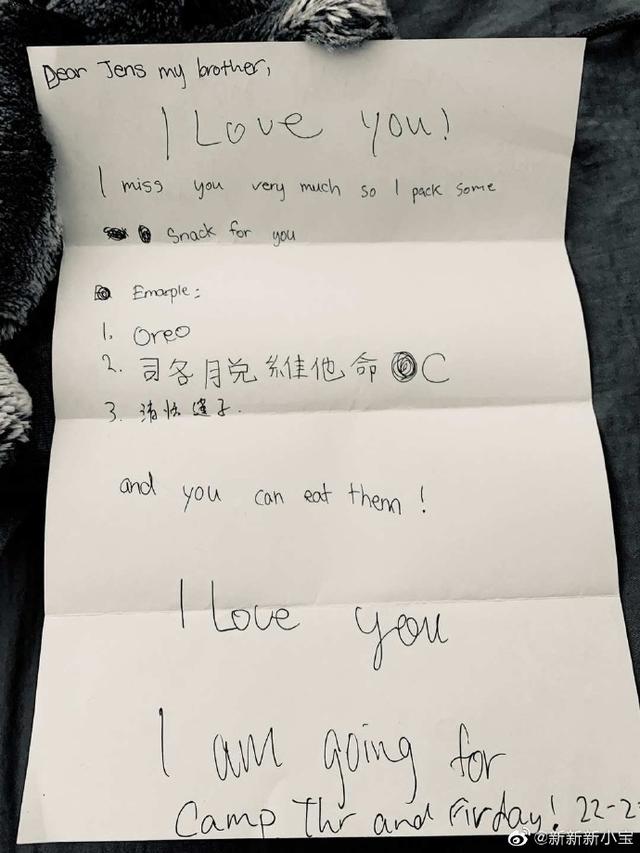 Dear Jens my brother,
I Love you!
I miss you very much so I pack some
Snack for you
Emarple:
1. Oreo
2. 司各月兑維他命 C
3. 清快達子.
and you can eat them!
I Love you
I am going for
Camp Thr and Firday! 22-2
@新新新小宝